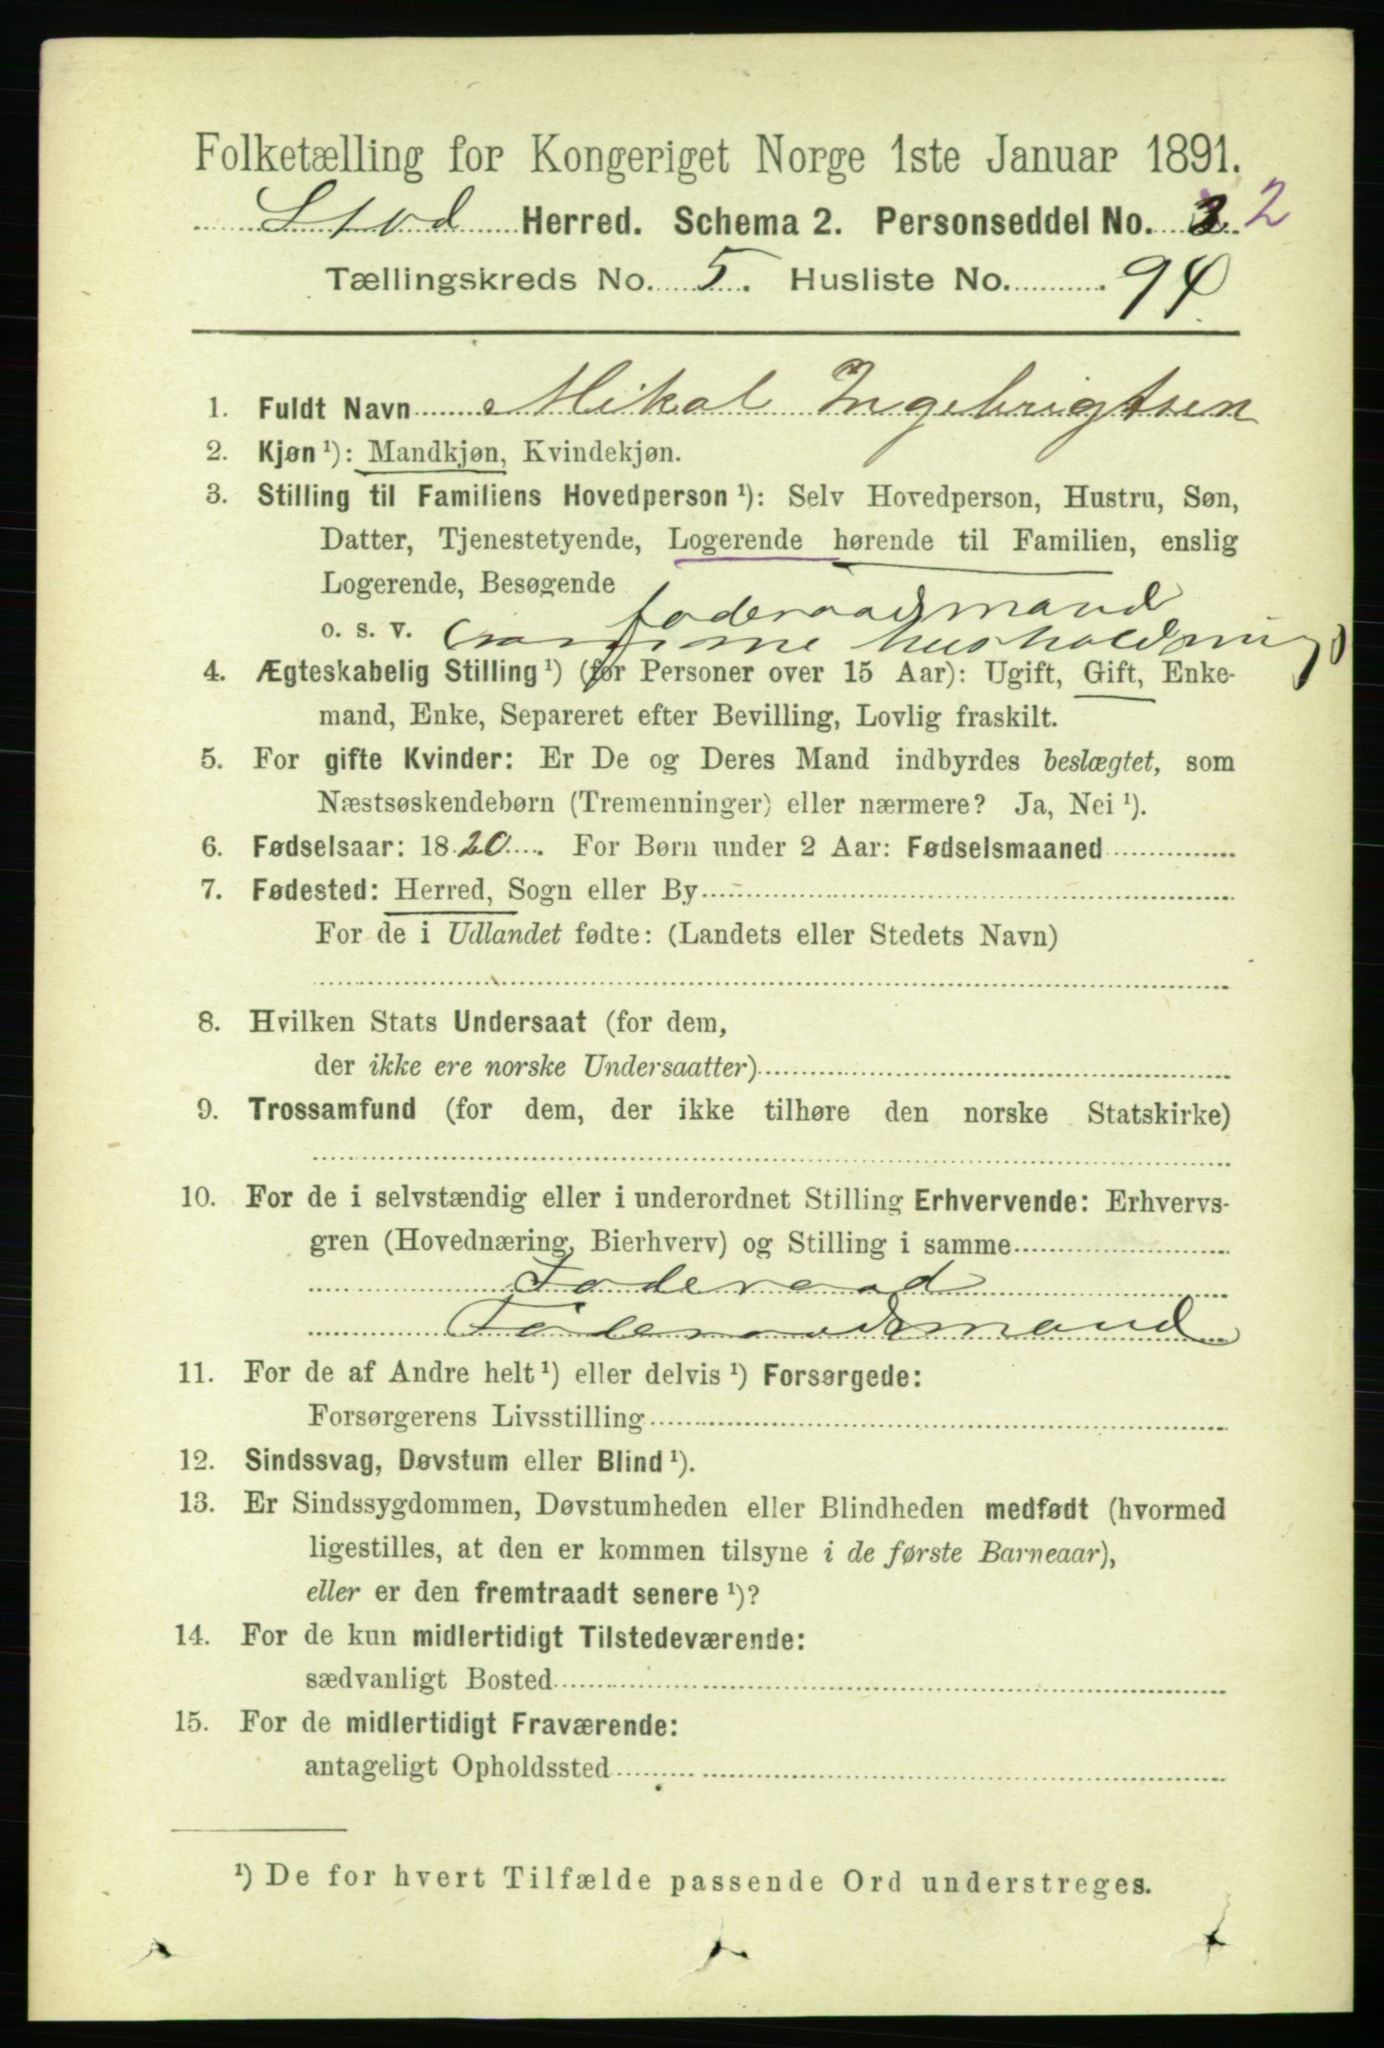 Folketælling for Kongeriget Norge 1ste Januar 1891.
Stod Herred. Schema 2. Personseddel No. 3 2
Tællingskreds No. 5. Husliste No. 94
1. Fuldt Navn Mikal Ingebrigtsen
2. Kjøn ¹): Mandkjøn, Kvindekjøn.
3. Stilling til Familiens Hovedperson ¹): Selv Hovedperson, Hustru, Søn,
Datter, Tjenestetyende, Logerende hørende til Familien, enslig
Logerende, Besøgende
foderaadsmand
o. s. v. husholdning
4. Ægteskabelig Stilling ¹) (for Personer over 15 Aar): Ugift, Gift, Enke-
mand, Enke, Separeret efter Bevilling, Lovlig fraskilt.
5. For gifte Kvinder: Er De og Deres Mand indbyrdes beslægtet, som
Næstsøskendebørn (Tremenninger) eller nærmere? Ja, Nei ¹).
6. Fødselsaar: 1820. For Børn under 2 Aar: Fødselsmaaned
7. Fødested: Herred, Sogn eller By
For de i Udlandet fødte: (Landets eller Stedets Navn)
8. Hvilken Stats Undersaat (for dem,
der ikke ere norske Undersaatter)
9. Trossamfund (for dem, der ikke tilhøre den norske Statskirke)
10. For de i selvstændig eller i underordnet Stilling Erhvervende: Erhvervs-
gren (Hovednæring, Bierhverv) og Stilling i samme
Foderaad
Foderaadsmand
11. For de af Andre helt ¹) eller delvis ¹) Forsørgede:
Forsørgerens Livsstilling
12. Sindssvag, Døvstum eller Blind ¹).
13. Er Sindssygdommen, Døvstumheden eller Blindheden medfødt (hvormed
ligestilles, at den er kommen tilsyne i de første Barneaar),
eller er den fremtraadt senere ¹)?
14. For de kun midlertidigt Tilstedeværende:
sædvanligt Bosted
15. For de midlertidigt Fraværende:
antageligt Opholdssted
¹) De for hvert Tilfælde passende Ord understreges.